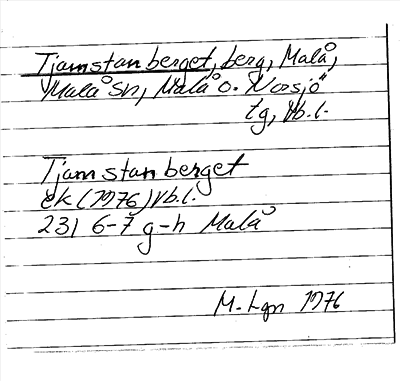 Tjamstanberget, berg, Malå,
Malå sn, Malå o. Norsjö
tg, Vb.l.
Tjamstanberget
ek (1976) Vb.l.
231 6-7 g-h Malå
M. Lgn 1976